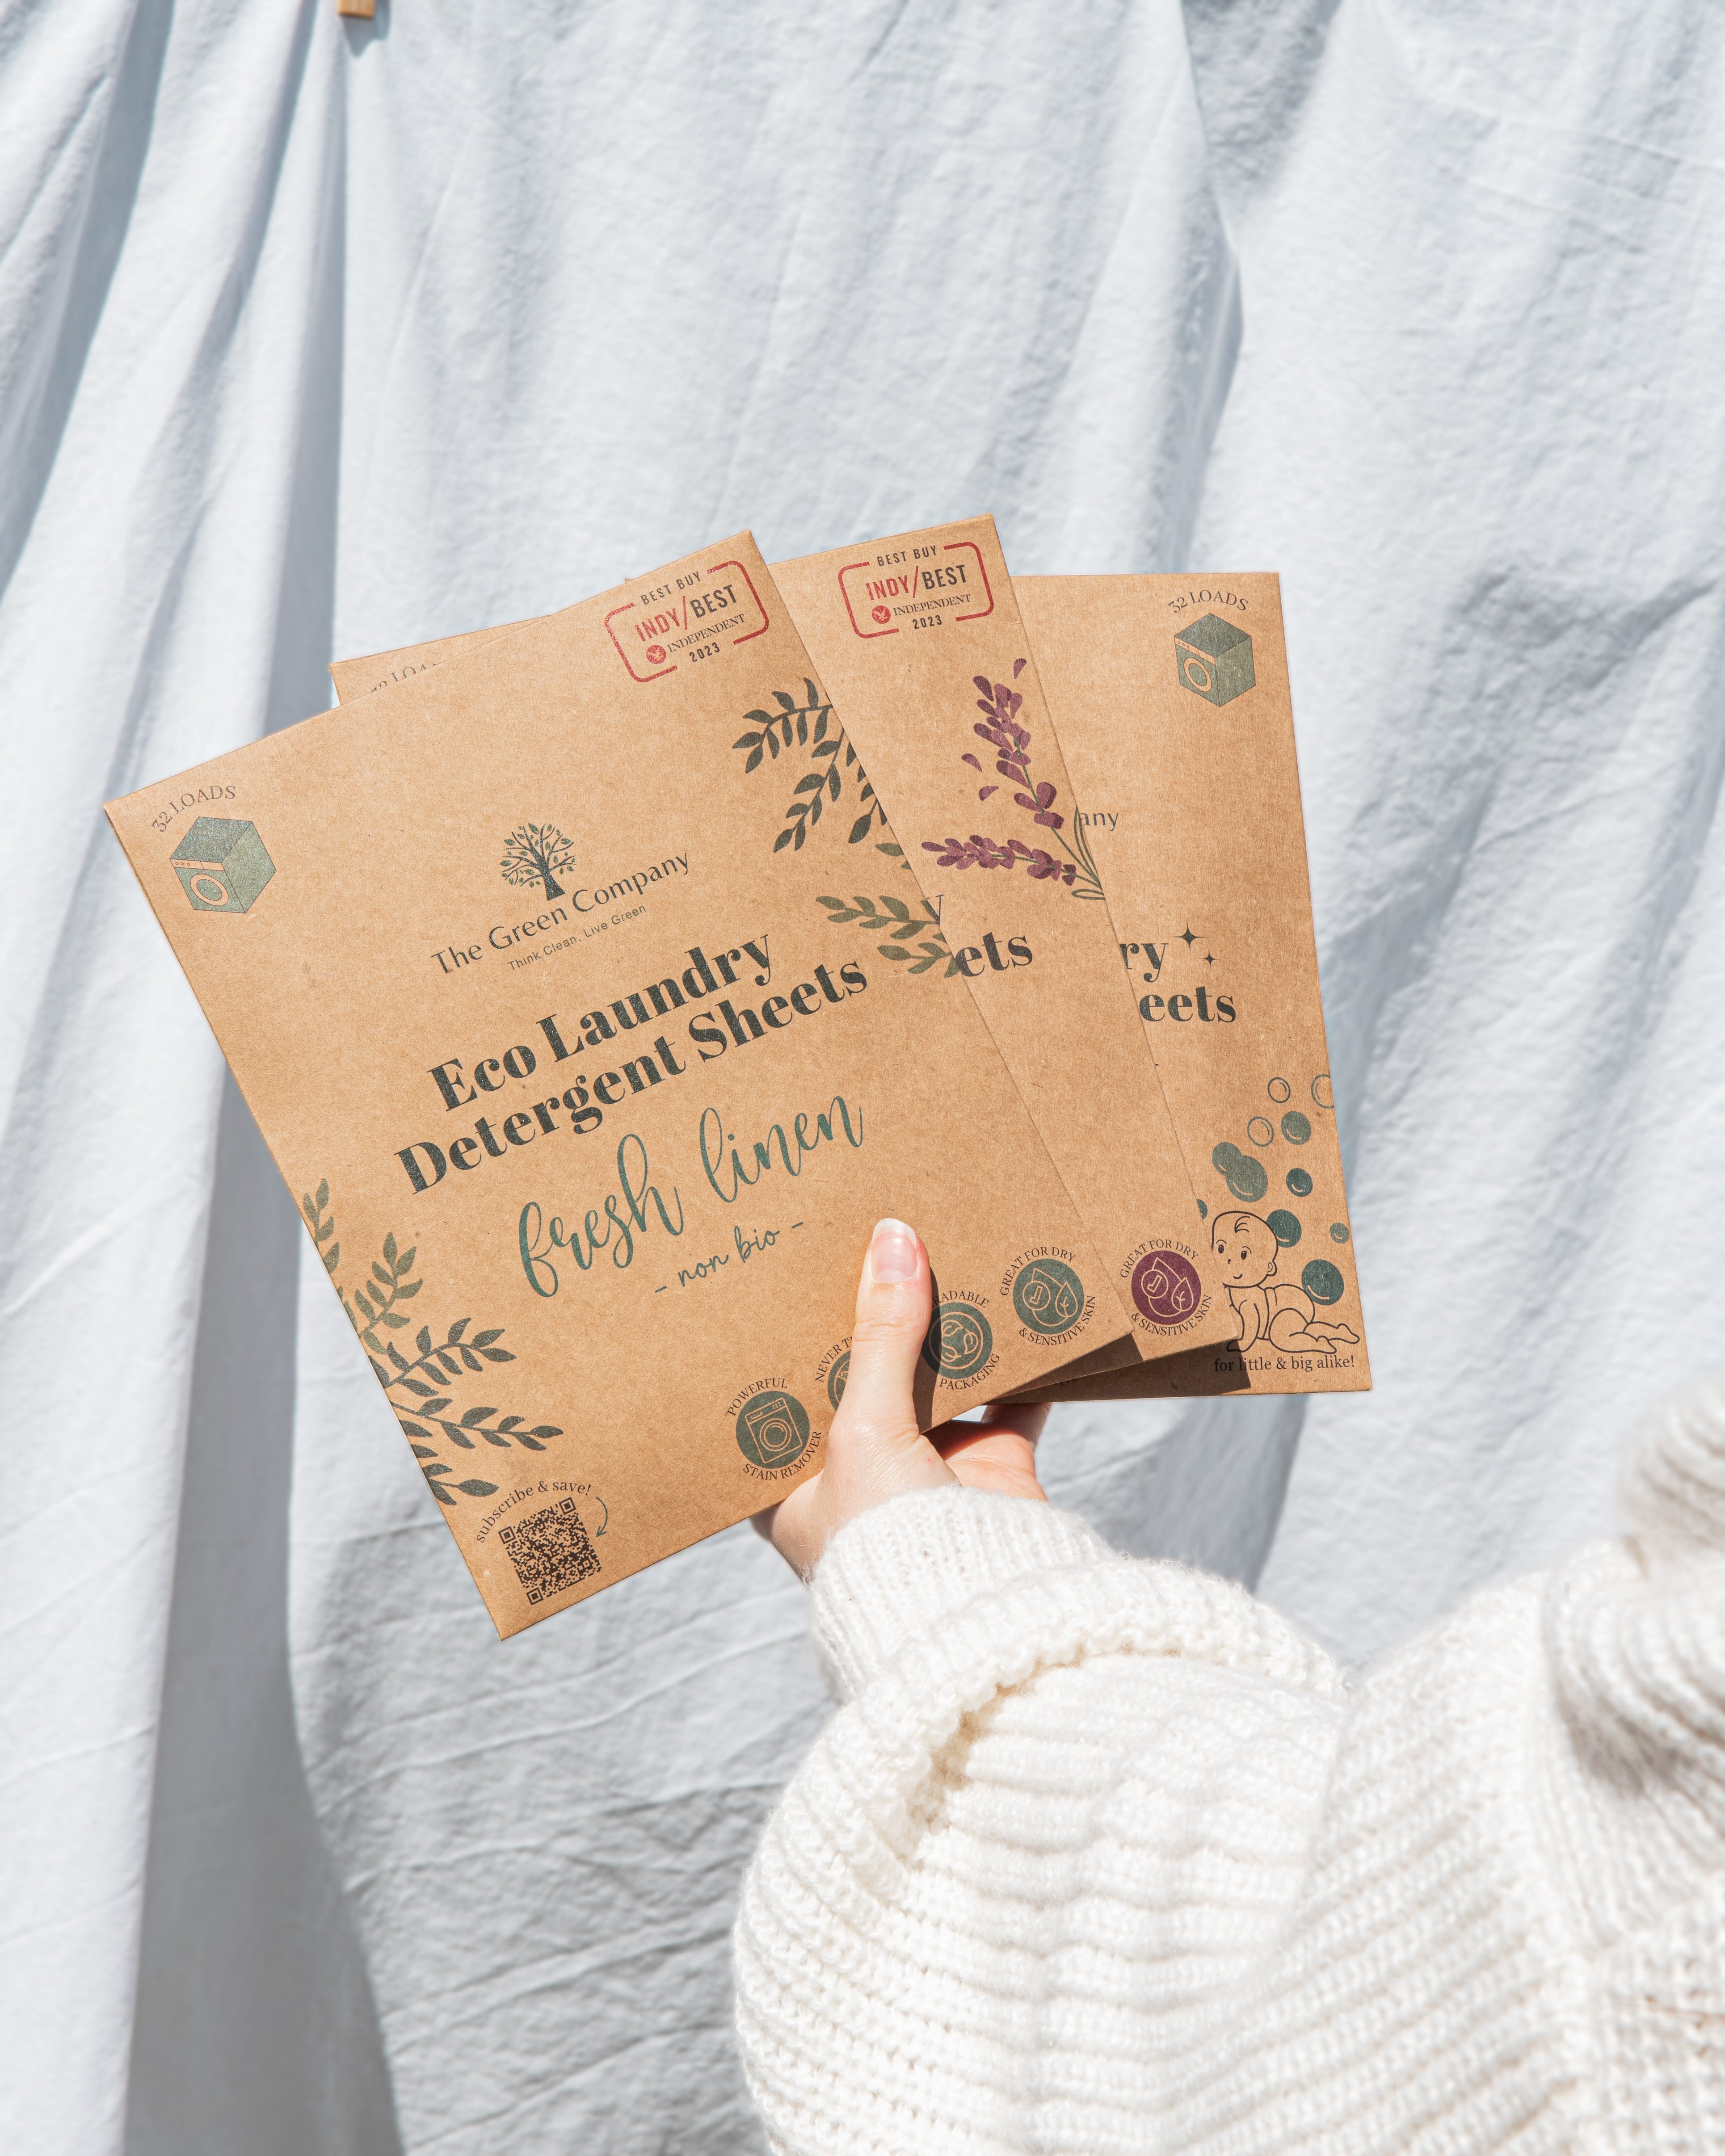 32 LOADS
BEST BUY
INDY/BEST
INDEPENDENT
2023
The Green Company
Think Clean, Live Green
Eco Laundry
Detergent Sheets
fresh linen
- non bio -
subscribe & save!
POWERFUL
STAIN REMOVER
NEVER
PACKAGING
GREAT FOR DRY
& SENSITIVE SKIN
BEST BUY
INDY/BEST
INDEPENDENT
2023
ets
GREAT FOR DRY
& SENSITIVE SKIN
32 LOADS
any
ry
eets
for little & big alike!